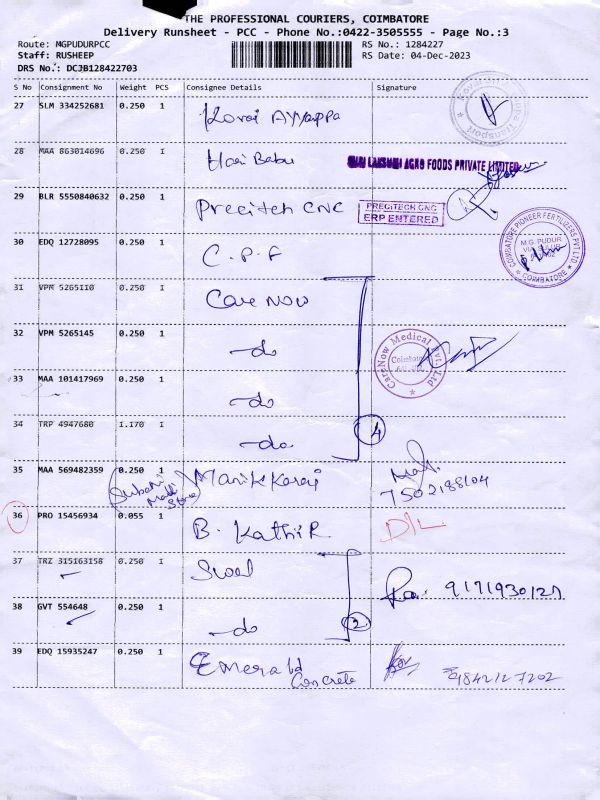 THE PROFESSIONAL COURIERS, COIMBATORE
Delivery Runsheet - PCC - Phone No.:0422-3505555 - Page No.:3
Route: MGPUDURPCC RS No.: 1284227
Staff: RUSHEEP RS Date: 04-Dec-2023
DRS No.: DCJB128422703
S No Consignment No Weight PCS Consignee Details Signature
27 SLM 334252681 0.250 1 Korai Ayyappa
28 MAA 863014696 0.250 1 Hari Babu SRI LAKSHMI AGRO FOODS PRIVATE LIMITED
29 BLR 5550840632 0.250 1 Precitech CNC PRECITECH CNC
ERP ENTERED
30 EDQ 12728095 0.250 1 C.P.F COIMBATORE PIONEER FERTILIZERS PVT.LTD
M.G. PUDUR
COIMBATORE
31 VPM 5265110 0.250 1 Care Now
32 VPM 5265145 0.250 1 -do CareNow Medical Pvt. Ltd
Coimbatore
33 MAA 101417969 0.250 1 -do
34 TRP 4947680 1.170 1 -do 4
35 MAA 569482359 0.250 1 Manikkaraj
7502188104
36 PRO 15456934 0.055 1 B. Kathir D/L
37 TRZ 315163158 0.250 1
38 GVT 554648 0.250 1 -do 2
39 EDQ 15935247 0.250 1 Emerald
Concrete 9842127202